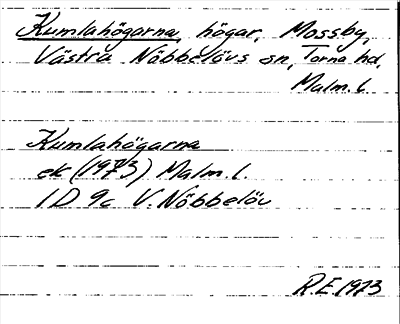 Kumlahögarna, högar, Mossby,
Västra Nöbbelövs sn, Torna hd,
Malm. l.
Kumlahögarna
ek (1973) Malm. l.
1D 9c V. Nöbbelöv
R.E. 1973